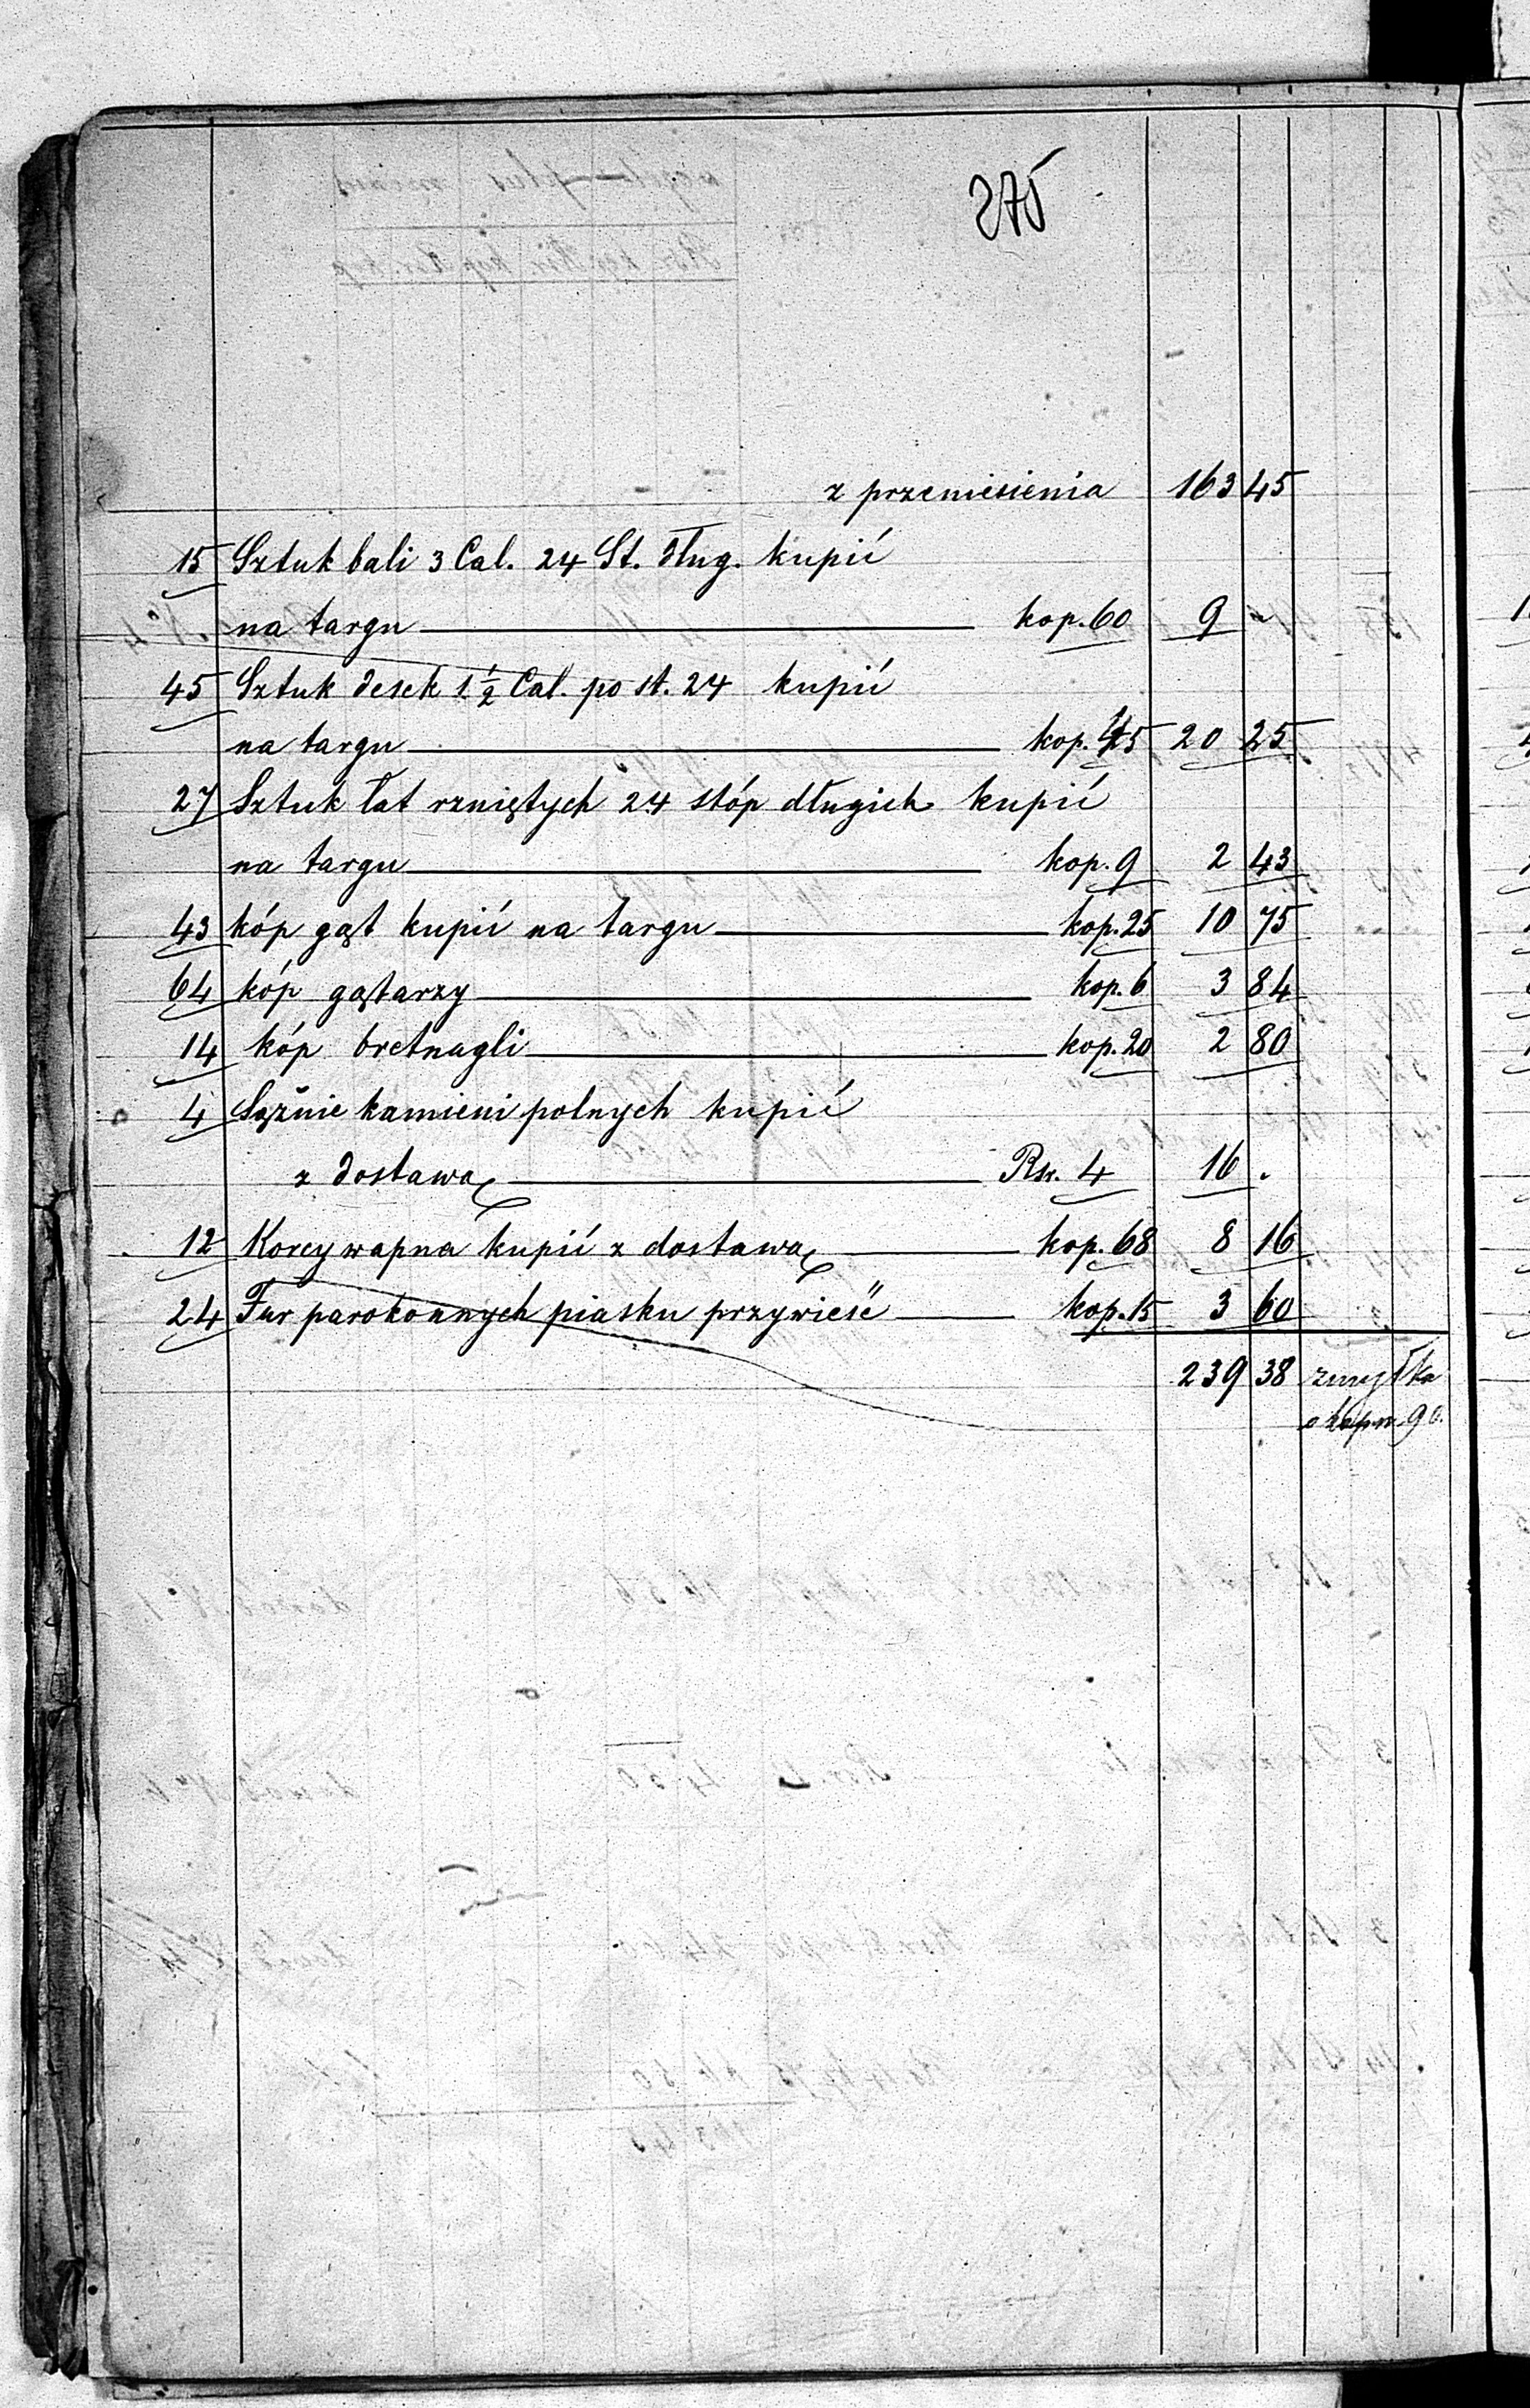 275
z przeniesienia 163 45
15 Sztuk bali 3 Cal. 24 St. dług. kupić
na targu kop. 60 9 "
45 Sztuk desek 1 1/2 Cal. po st. 24 kupić
na targu kop. 45 20 25
27 Sztuk łat rzniętych 24 stóp długich kupić
na targu kop. 9 2 43
43 kóp gąt kupić na targu kop. 25 10 75
64 kóp gątarzy kop. 6 3 84
14 kóp bretnagli kop. 20 2 80
4 Sążnie kamieni polnych kupić
z dostawą Rsr. 4 16 .
12 Korcy wapna kupić z dostawą kop. 68 8 16
24 Fur parokonnych piasku przywieść kop. 15 3 60
239 38 zmyłka
o kop. 90.